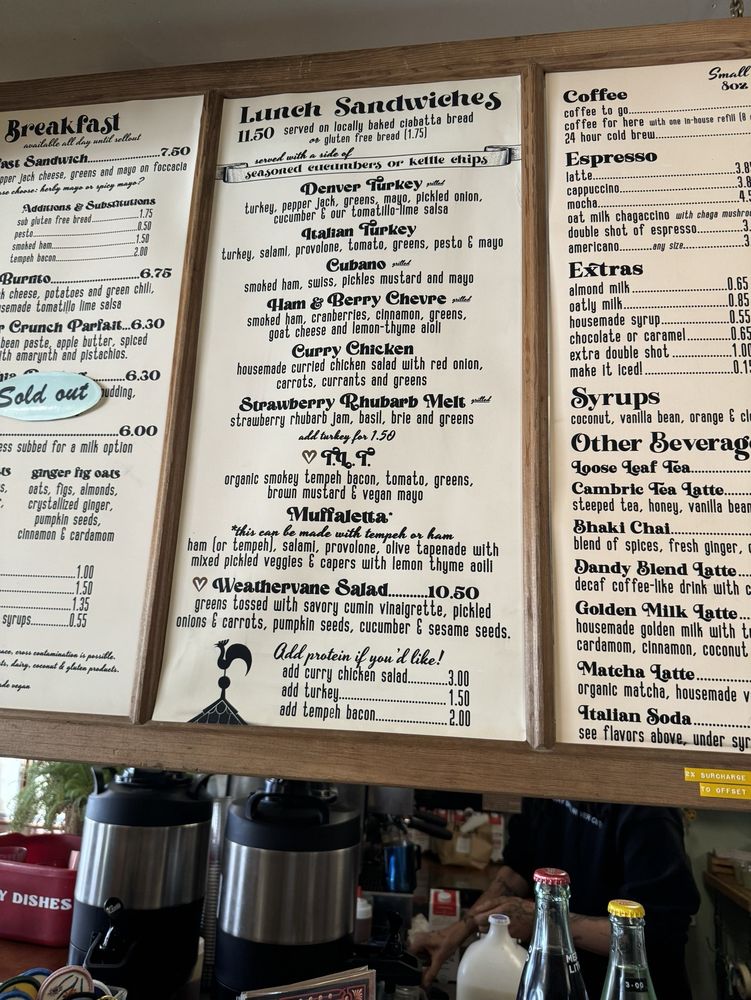 Breakfast
available all day until sellout
ast Sandwich....................7.50
pper jack cheese, greens and mayo on foccacia
se choose: herby mayo or spicy mayo?
Additions & Substitutions
sub gluten free bread...............1.75
pesto...............0.50
smoked ham...............1.50
tempeh bacon...............2.00
Burrito...............6.75
k cheese, potatoes and green chili,
usemade tomatillo lime salsa
r Crunch Parfait...6.30
bean paste, apple butter, spiced
ith amarynth and pistachios.
......6.30
Sold out
udding,
...............6.00
ess subbed for a milk option
ats
ginger fig oats
oats, figs, almonds,
crystallized ginger,
pumpkin seeds,
cinnamon & cardamom
...............1.00
...............1.50
...............1.35
syrups...............0.55
ace, cross contamination is possible.
ts, dairy, coconut & gluten products.
de vegan
Lunch Sandwiches
11.50 served on locally baked ciabatta bread
or gluten free bread (1.75)
served with a side of
seasoned cucumbers or kettle chips
Denver Turkey grilled
turkey, pepper jack, greens, mayo, pickled onion,
cucumber & our tomatillo-lime salsa
Italian Turkey
turkey, salami, provolone, tomato, greens, pesto & mayo
Cubano grilled
smoked ham, swiss, pickles mustard and mayo
Ham & Berry Chevre grilled
smoked ham, cranberries, cinnamon, greens,
goat cheese and lemon-thyme aioli
Curry Chicken
housemade curried chicken salad with red onion,
carrots, currants and greens
Strawberry Rhubarb Melt grilled
strawberry rhubarb jam, basil, brie and greens
add turkey for 1.50
♡ T.L.T.
organic smokey tempeh bacon, tomato, greens,
brown mustard & vegan mayo
Muffaletta*
*this can be made with tempeh or ham
ham (or tempeh), salami, provolone, olive tapenade with
mixed pickled veggies & capers with lemon thyme aoili
♡ Weathervane Salad..........10.50
greens tossed with savory cumin vinaigrette, pickled
onions & carrots, pumpkin seeds, cucumber & sesame seeds.
Add protein if you'd like!
add curry chicken salad..........3.00
add turkey....................1.50
add tempeh bacon....................2.00
Small
8oz
Coffee
coffee to go...............
coffee for here with one in-house refill (8
24 hour cold brew...............
Espresso
latte...............3.8
cappuccino...............3.8
mocha...............4.5
oat milk chagaccino with chaga mushroom
double shot of espresso...............3.
americano..........any size...............3.
Extras
almond milk...............0.65
oatly milk...............0.85
housemade syrup...............0.55
chocolate or caramel...............0.65
extra double shot...............1.00
make it iced!...............0.15
Syrups
coconut, vanilla bean, orange & cl
Other Beverage
Loose Leaf Tea...............
Cambric Tea Latte...............
steeped tea, honey, vanilla bean
Bhaki Chai...............
blend of spices, fresh ginger,
Dandy Blend Latte...............
decaf coffee-like drink with c
Golden Milk Latte...............
housemade golden milk with t
cardamom, cinnamon, coconut
Matcha Latte...............
organic matcha, housemade v
Italian Soda...............
see flavors above, under syr
2% SURCHARGE
TO OFFSET
Y DISHES
3.00